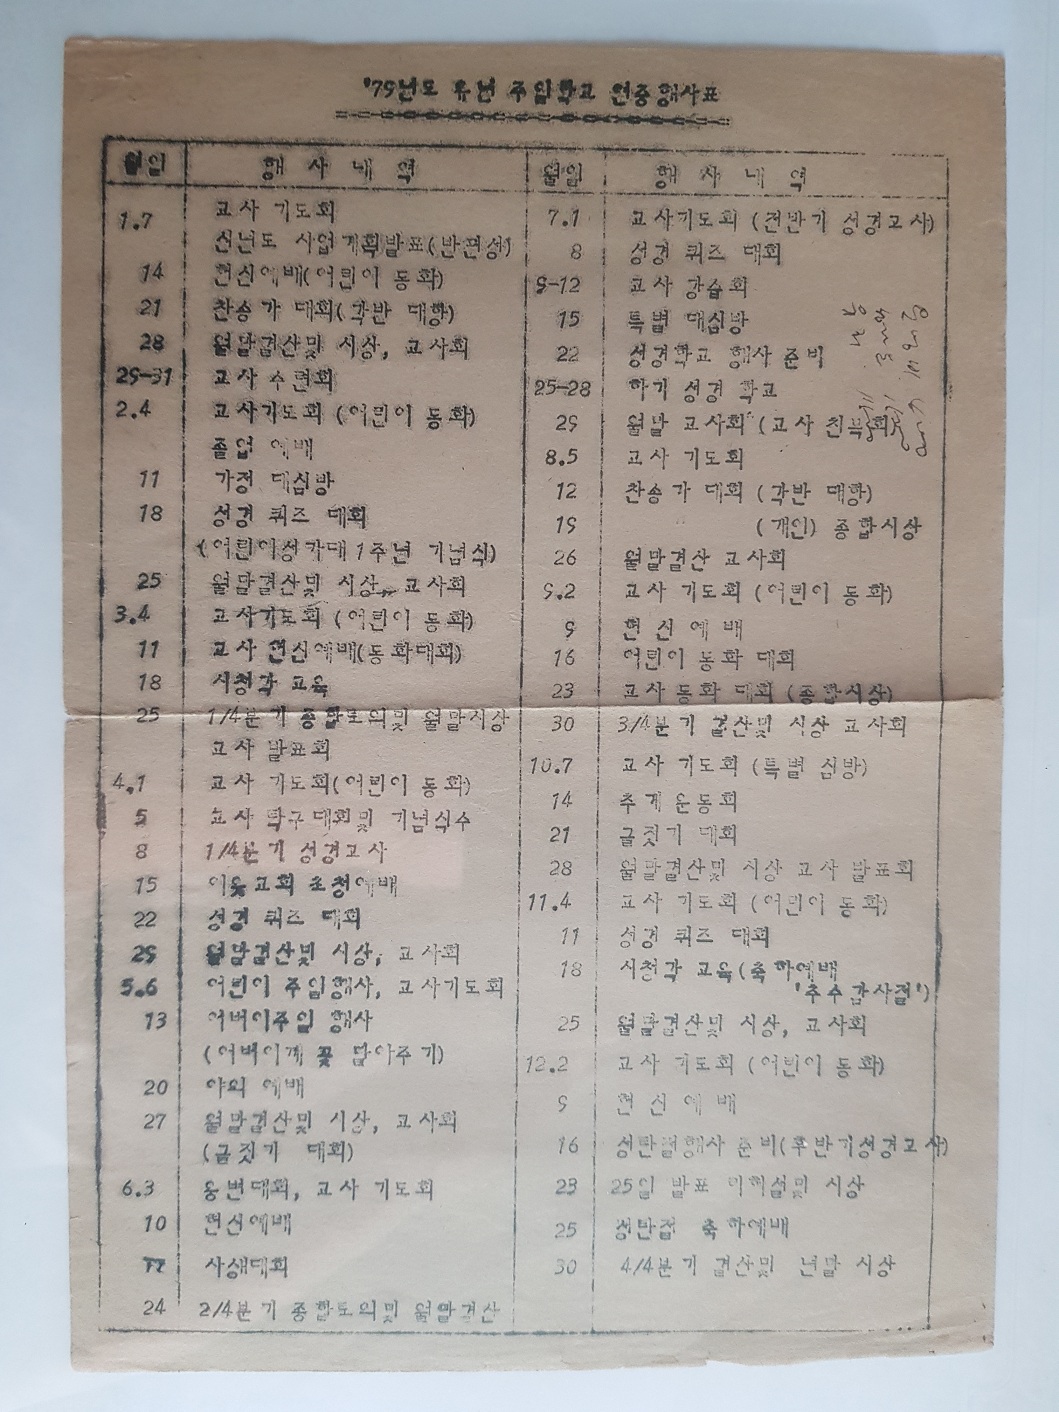 '79년도 유년 주일학교 연중행사표
월일 행 사 내 역
1.7 교사 기도회
신년도 사업계획발표(반편성)
14 헌신예배(어린이 동화)
21 찬송가 대회(각반 대항)
28 월말결산및 시상, 교사회
29-31 교사 수련회
2.4 교사기도회 (어린이 동화)
졸업 예배
11 가정 대심방
18 성경 퀴즈 대회
(어린이성가대 1주년 기념식)
25 월말결산및 시상, 교사회
3.4 교사기도회 (어린이 동화)
11 교사 헌신예배(동화대회)
18 시청각 교육
25 1/4분기 종합토의및 월말시상
교사 발표회
4.1 교사 기도회(어린이 동화)
5 교사 탁구대회및 기념식수
8 1/4분기 성경고사
15 이웃교회 초청예배
22 성경 퀴즈 대회
29 월말결산및 시상, 교사회
5.6 어린이 주일행사, 교사기도회
13 어버이주일 행사
(어버이께 꽃 달아주기)
20 야외 예배
27 월말결산및 시상, 교사회
(글짓기 대회)
6.3 웅변대회, 교사 기도회
10 헌신예배
17 사생대회
24 2/4분기 종합토의및 월말결산
월일 행 사 내 역
7.1 교사기도회 (전반기 성경고사)
8 성경 퀴즈 대회
9-12 교사 강습회
15 특별 대심방
22 성경학교 행사 준비
25-28 하기 성경 학교
29 월말 교사회 (교사 친목회)
8.5 교사 기도회
12 찬송가 대회 (각반 대항)
19 (개인) 종합시상
26 월말결산 교사회
9.2 교사 기도회 (어린이 동화)
9 헌신예배
16 어린이 동화 대회
23 교사 동화 대회 (종합시상)
30 3/4분기 결산및 시상 교사회
10.7 교사 기도회 (특별 심방)
14 추계 운동회
21 글짓기 대회
28 월말결산및 시상 교사 발표회
11.4 교사 기도회 (어린이 동화)
11 성경 퀴즈 대회
18 시청각 교육(축하예배
'추수감사절')
25 월말결산및 시상, 교사회
12.2 교사 기도회 (어린이 동화)
9 헌신예배
16 성탄절행사 준비(후반기성경고사)
23 25일 발표 및 시상
25 성탄절 축하예배
30 4/4분기 결산및 년말 시상